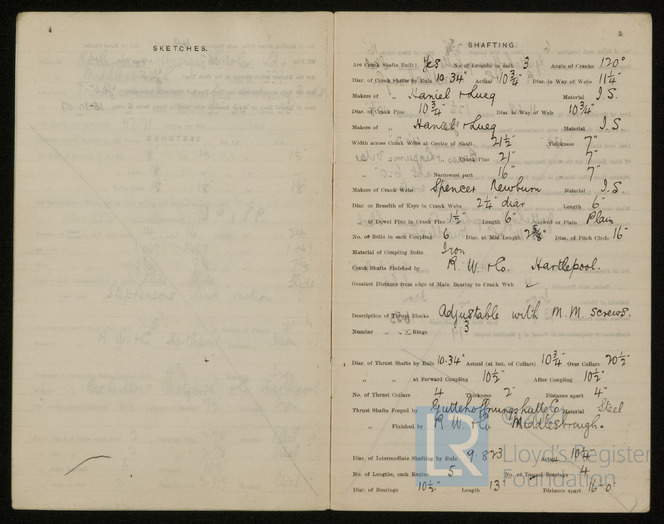 4
SKETCHES.
5
SHAFTING.
Are Crank Shafts Built? Yes No. of Lengths in each 3 Angle of Cranks 120°
Diar. of Crank Shafts by Rule 10.34" Actual 10 3/4" Diar. in Way of Webs 11 1/4"
Makers of " Haniel & Lueg Material I.S.
Diar. of Crank Pins 10 3/4" Diar. in Way of Web 10 3/4"
Makers of " Haniel & Lueg Material I.S.
Width across Crank Webs at Centre of Shaft 21 1/2" Thickness 7"
" " Crank Pins 21" 7"
" Narrowest part 16" 7"
Makers of Crank Webs Spencer Newburn Material I.S.
Diar. or Breadth of Keys in Crank Webs 2 1/4" diar Length 6"
" of Dowel Pins in Crank Pins 1 1/2" Length 6" Screwed or Plain Plain
No. of Bolts in each Coupling 6 Diar. at Mid Length 2 5/8" Diar. of Pitch Circle 16"
Material of Coupling Bolts Iron
Crank Shafts Finished by R. W. & Co. Hartlepool.
Greatest Distance from edge of Main Bearing to Crank Web
Description of Thrust Blocks Adjustable with M.M. screws.
Number " " Rings 3
Diar. of Thrust Shafts by Rule 10.34" Actual (at bot. of Collars) 10 3/4" Over Collars 20 1/2"
" " at Forward Coupling 10 1/2" After Coupling 10 1/2"
No. of Thrust Collars 4 Thickness 2" Distance apart 4"
Thrust Shafts Forged by Material Steel
" Finished by R. W. & Co Middlesbrough.
Diar. of Intermediate Shafting by Rule 9.823 Actual 10 1/4"
No. of Lengths, each Engine 5 No. of Tunnel Bearings 4
Diar. of Bearings 10 1/2" Length 13" Distance apart 16-0"
LR
Lloyd's Register
Foundation